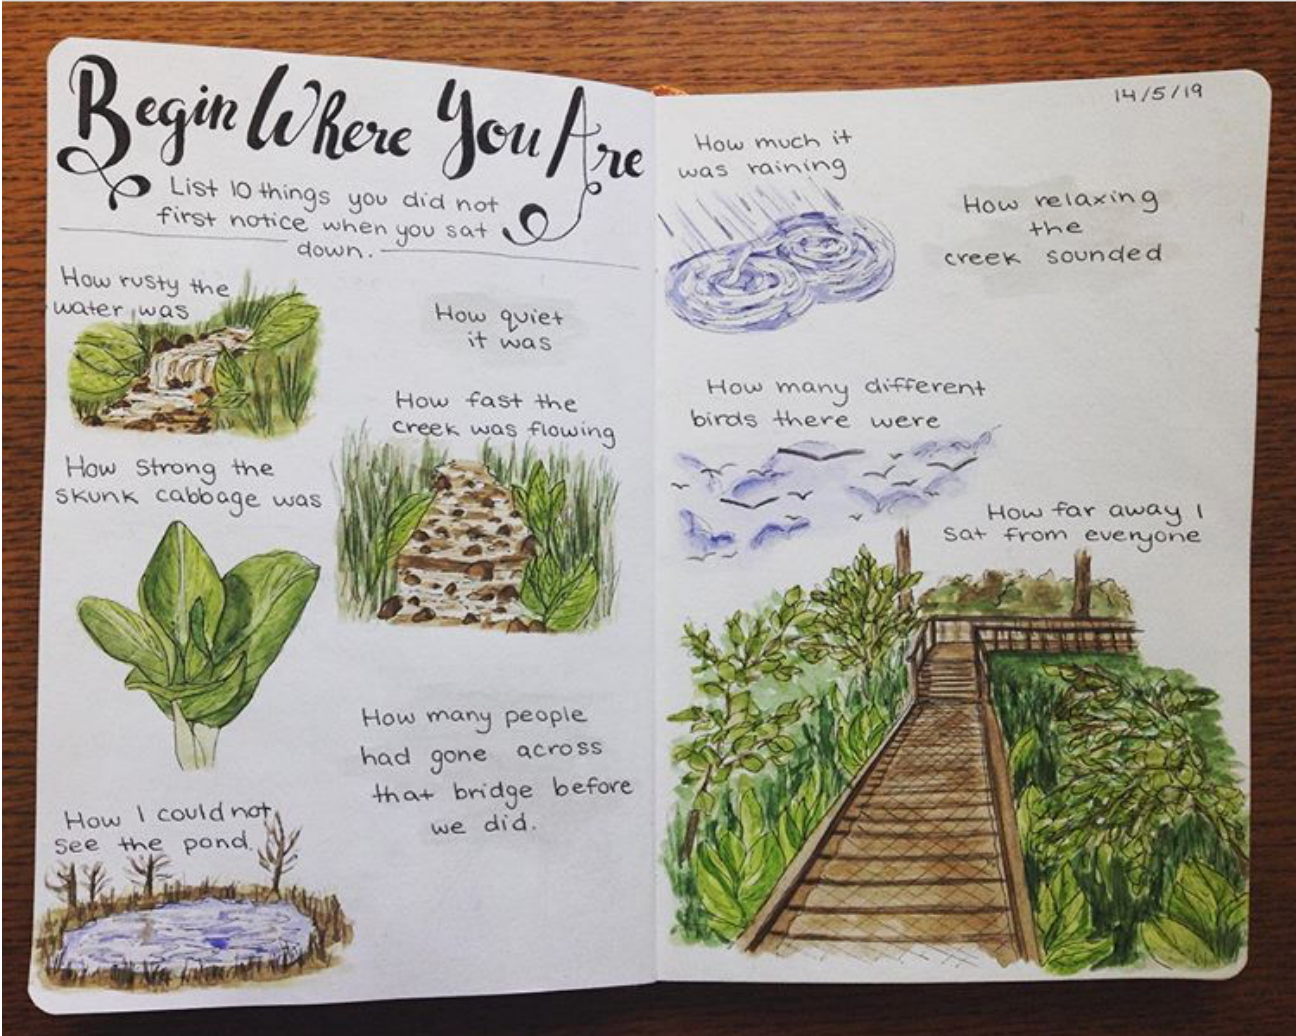 Begin Where You Are
List 10 things you did not
first notice when you sat
down.
How rusty the
water was
How quiet
it was
How fast the
creek was flowing
How strong the
skunk cabbage was
How many people
had gone across
that bridge before
we did.
How I could not
see the pond.
14/5/19
How much it
was raining
How relaxing
the
creek sounded
How many different
birds there were
How far away I
sat from everyone